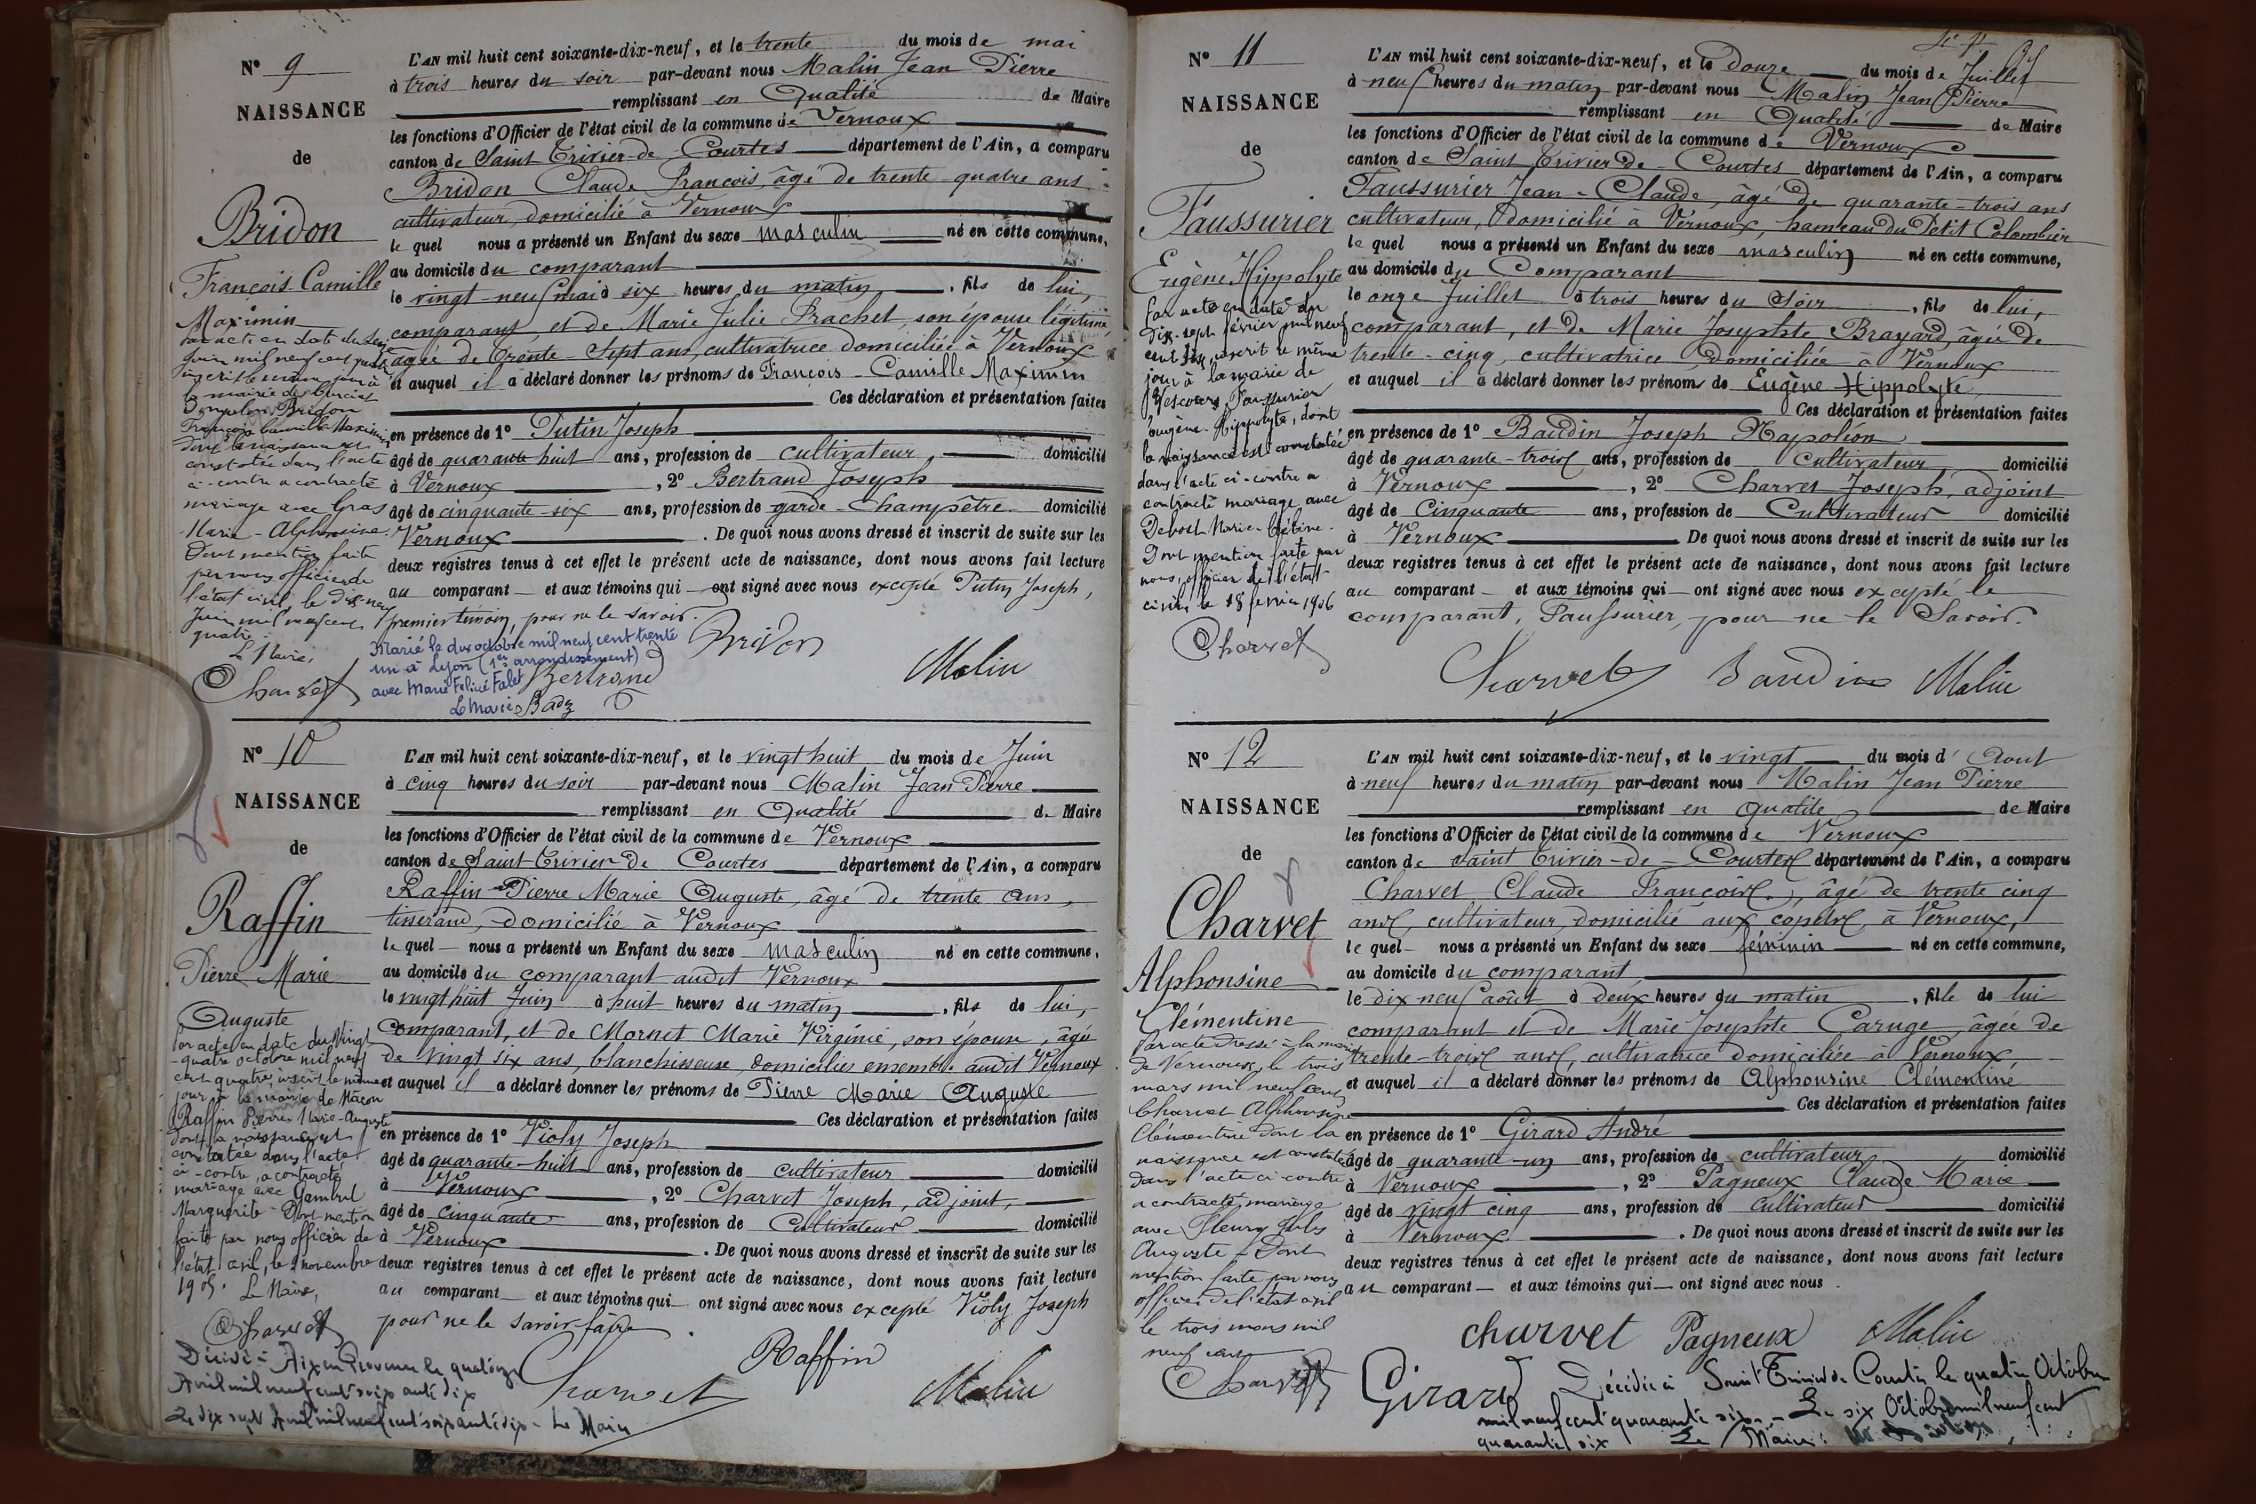 N° 9
NAISSANCE
de
Bridon
François Camille
Maximin
par acte en date du
juin mil neuf cent quatre
inscrit le même jour à
la mairie de
Bridon
François Camille Maximin
dont la naissance est
constatée dans l'acte
ci-contre a contracté
mariage avec Gras
Marie-Alphonsine.
Dont mention faite
par nous officier de
l'état civil, le dix-neuf
juin mil neuf cent
quatre
Le Maire,
Charvet
L'AN mil huit cent soixante-dix-neuf, et le trente du mois de mai
à trois heures du soir par-devant nous Malin Jean Pierre
remplissant en Qualité de Maire
les fonctions d'Officier de l'état civil de la commune de Vernoux
canton de Saint Trivier-de-Courtes département de l'Ain, a comparu
Bridon Claude François, âgé de trente quatre ans
cultivateur, domicilié à Vernoux
le quel nous a présenté un Enfant du sexe masculin né en cette commune,
au domicile du comparant
le vingt-neuf mai à six heures du matin, fils de lui,
comparant, et de Marie Julie Prachet, son épouse légitime
âgée de trente-sept ans, cultivatrice domiciliée à Vernoux
et auquel il a déclaré donner les prénoms de François-Camille Maximin
Ces déclaration et présentation faites
en présence de 1° Putin Joseph
âgé de quarante huit ans, profession de cultivateur, domicilié
à Vernoux, 2° Bertrand Joseph
âgé de cinquante-six ans, profession de garde-Champêtre domicilié
Vernoux. De quoi nous avons dressé et inscrit de suite sur les
deux registres tenus à cet effet le présent acte de naissance, dont nous avons fait lecture
au comparant et aux témoins qui ont signé avec nous excepté Putin Joseph,
premier témoin, pour ne le savoir.
Marié le dix octobre mil neuf cent trente
un à Lyon (1er arrondissement)
avec Marie Felicie Falet
Le Maire
Bridon
Bertrand
Malin
N° 10
NAISSANCE
de
Raffin
Pierre Marie
Auguste
Par acte en date du vingt
-quatre octobre mil neuf
cent quatre, inscrit le même
jour à la mairie de Mâcon
Raffin Pierre Marie-Auguste
dont la naissance est
constatée dans l'acte
ci-contre, a contracté
mariage avec
Marguerite - Dont mention
faite par nous officier de
l'état civil, le novembre
Le Maire,
Charvet
Décédé à Aix en Provence le quatorze
Avril mil neuf cent soixante dix
Le dix sept Avril mil neuf cent soixante dix - Le Maire
L'AN mil huit cent soixante-dix-neuf, et le vingt huit du mois de Juin
à cinq heures du soir par-devant nous Malin Jean Pierre
remplissant en Qualité de Maire
les fonctions d'Officier de l'état civil de la commune de Vernoux
canton de Saint-Trivier de Courtes département de l'Ain, a comparu
Raffin Pierre Marie Auguste, âgé de trente ans,
tisserand, domicilié à Vernoux
le quel nous a présenté un Enfant du sexe masculin né en cette commune,
au domicile du comparant audit Vernoux
le vingt huit Juin à huit heures du matin, fils de lui,
comparant, et de Mornet Marie Virginie, son épouse, âgée
de vingt six ans, blanchisseuse, domiciliés ensemble audit Vernoux
et auquel il a déclaré donner les prénoms de Pierre Marie Auguste
Ces déclaration et présentation faites
en présence de 1° Violy Joseph
âgé de quarante-huit ans, profession de cultivateur domicilié
à Vernoux, 2° Charvet Joseph, adjoint,
âgé de cinquante ans, profession de Cultivateur domicilié
à Vernoux. De quoi nous avons dressé et inscrit de suite sur les
deux registres tenus à cet effet le présent acte de naissance, dont nous avons fait lecture
au comparant et aux témoins qui ont signé avec nous excepté Violy Joseph
pour ne le savoir faire.
Charvet Raffin Malin
N° 11
NAISSANCE
de
Faussurier
Eugène Hippolyte
Par acte en date du
dix-sept février mil neuf
cent six, inscrit le même
jour à la mairie de
Vescours, Faussurier
Eugène-Hippolyte, dont
la naissance est constatée
dans l'acte ci-contre a
contracté mariage avec
Debost Marie-
Dont mention faite par
nous, officier de l'état
civil, le 18 février 1906
Charvet
L'AN mil huit cent soixante-dix-neuf, et le Douze du mois de Juillet
à neuf heures du matin par-devant nous Malin Jean Pierre
remplissant en Qualité de Maire
les fonctions d'Officier de l'état civil de la commune de Vernoux
canton de Saint Trivier de-Courtes département de l'Ain, a comparu
Faussurier Jean-Claude, âgé de quarante-trois ans
cultivateur, domicilié à Vernoux, hameau du Petit Colombier
le quel nous a présenté un Enfant du sexe masculin né en cette commune,
au domicile du Comparant
le onze Juillet à trois heures du soir, fils de lui,
comparant, et de Marie Josephte Brayard, âgée de
trente-cinq, cultivatrice, domiciliée à Vernoux
et auquel il a déclaré donner les prénoms de Eugène Hippolyte
Ces déclaration et présentation faites
en présence de 1° Baudin Joseph Napoléon
âgé de quarante-trois ans, profession de Cultivateur domicilié
à Vernoux, 2° Charvet Joseph, adjoint
âgé de Cinquante ans, profession de Cultivateur domicilié
à Vernoux De quoi nous avons dressé et inscrit de suite sur les
deux registres tenus à cet effet le présent acte de naissance, dont nous avons fait lecture
au comparant et aux témoins qui ont signé avec nous excepté le
comparant, Faussurier, pour ne le Savoir.
Charvet Baudin Malin
N° 12
NAISSANCE
de
Charvet
Alphonsine
Clémentine
Par acte dressé à la mairie
de Vernoux, le trois
mars mil neuf cent
Charvet Alphonsine
Clémentine dont la
naissance est constatée
dans l'acte ci contre
a contracté mariage
avec Fleury Jules
Auguste - Dont
mention faite par nous
officier de l'état civil
le trois mars mil
neuf cent
Charvet
L'AN mil huit cent soixante-dix-neuf, et le vingt du mois d'Aout
à neuf heures du matin par-devant nous Malin Jean Pierre
remplissant en qualité de Maire
les fonctions d'Officier de l'état civil de la commune de Vernoux
canton de Saint Trivier-de-Courtes département de l'Ain, a comparu
Charvet Claude François, âgé de trente cinq
ans, cultivateur, domicilié aux à Vernoux,
le quel nous a présenté un Enfant du sexe féminin né en cette commune,
au domicile du comparant,
le dix neuf août à deux heures du matin, fille de lui
comparant et de Marie Josephte Caruge, âgée de
trente-trois ans, cultivatrice domiciliée à Vernoux,
et auquel il a déclaré donner les prénoms de Alphonsine Clémentine
Ces déclaration et présentation faites
en présence de 1° Girard André
âgé de quarante-un ans, profession de cultivateur domicilié
à Vernoux, 2° Pagneux Claude Marie
âgé de vingt cinq ans, profession de Cultivateur domicilié
à Vernoux. De quoi nous avons dressé et inscrit de suite sur les
deux registres tenus à cet effet le présent acte de naissance, dont nous avons fait lecture
au comparant et aux témoins qui ont signé avec nous.
Charvet Pagneux Malin
Girard
Décédée à Saint Trivier de Courtes le quatre Octobre
mil neuf cent quarante six. - Le six Octobre mil neuf cent
quarante six Le Maire: